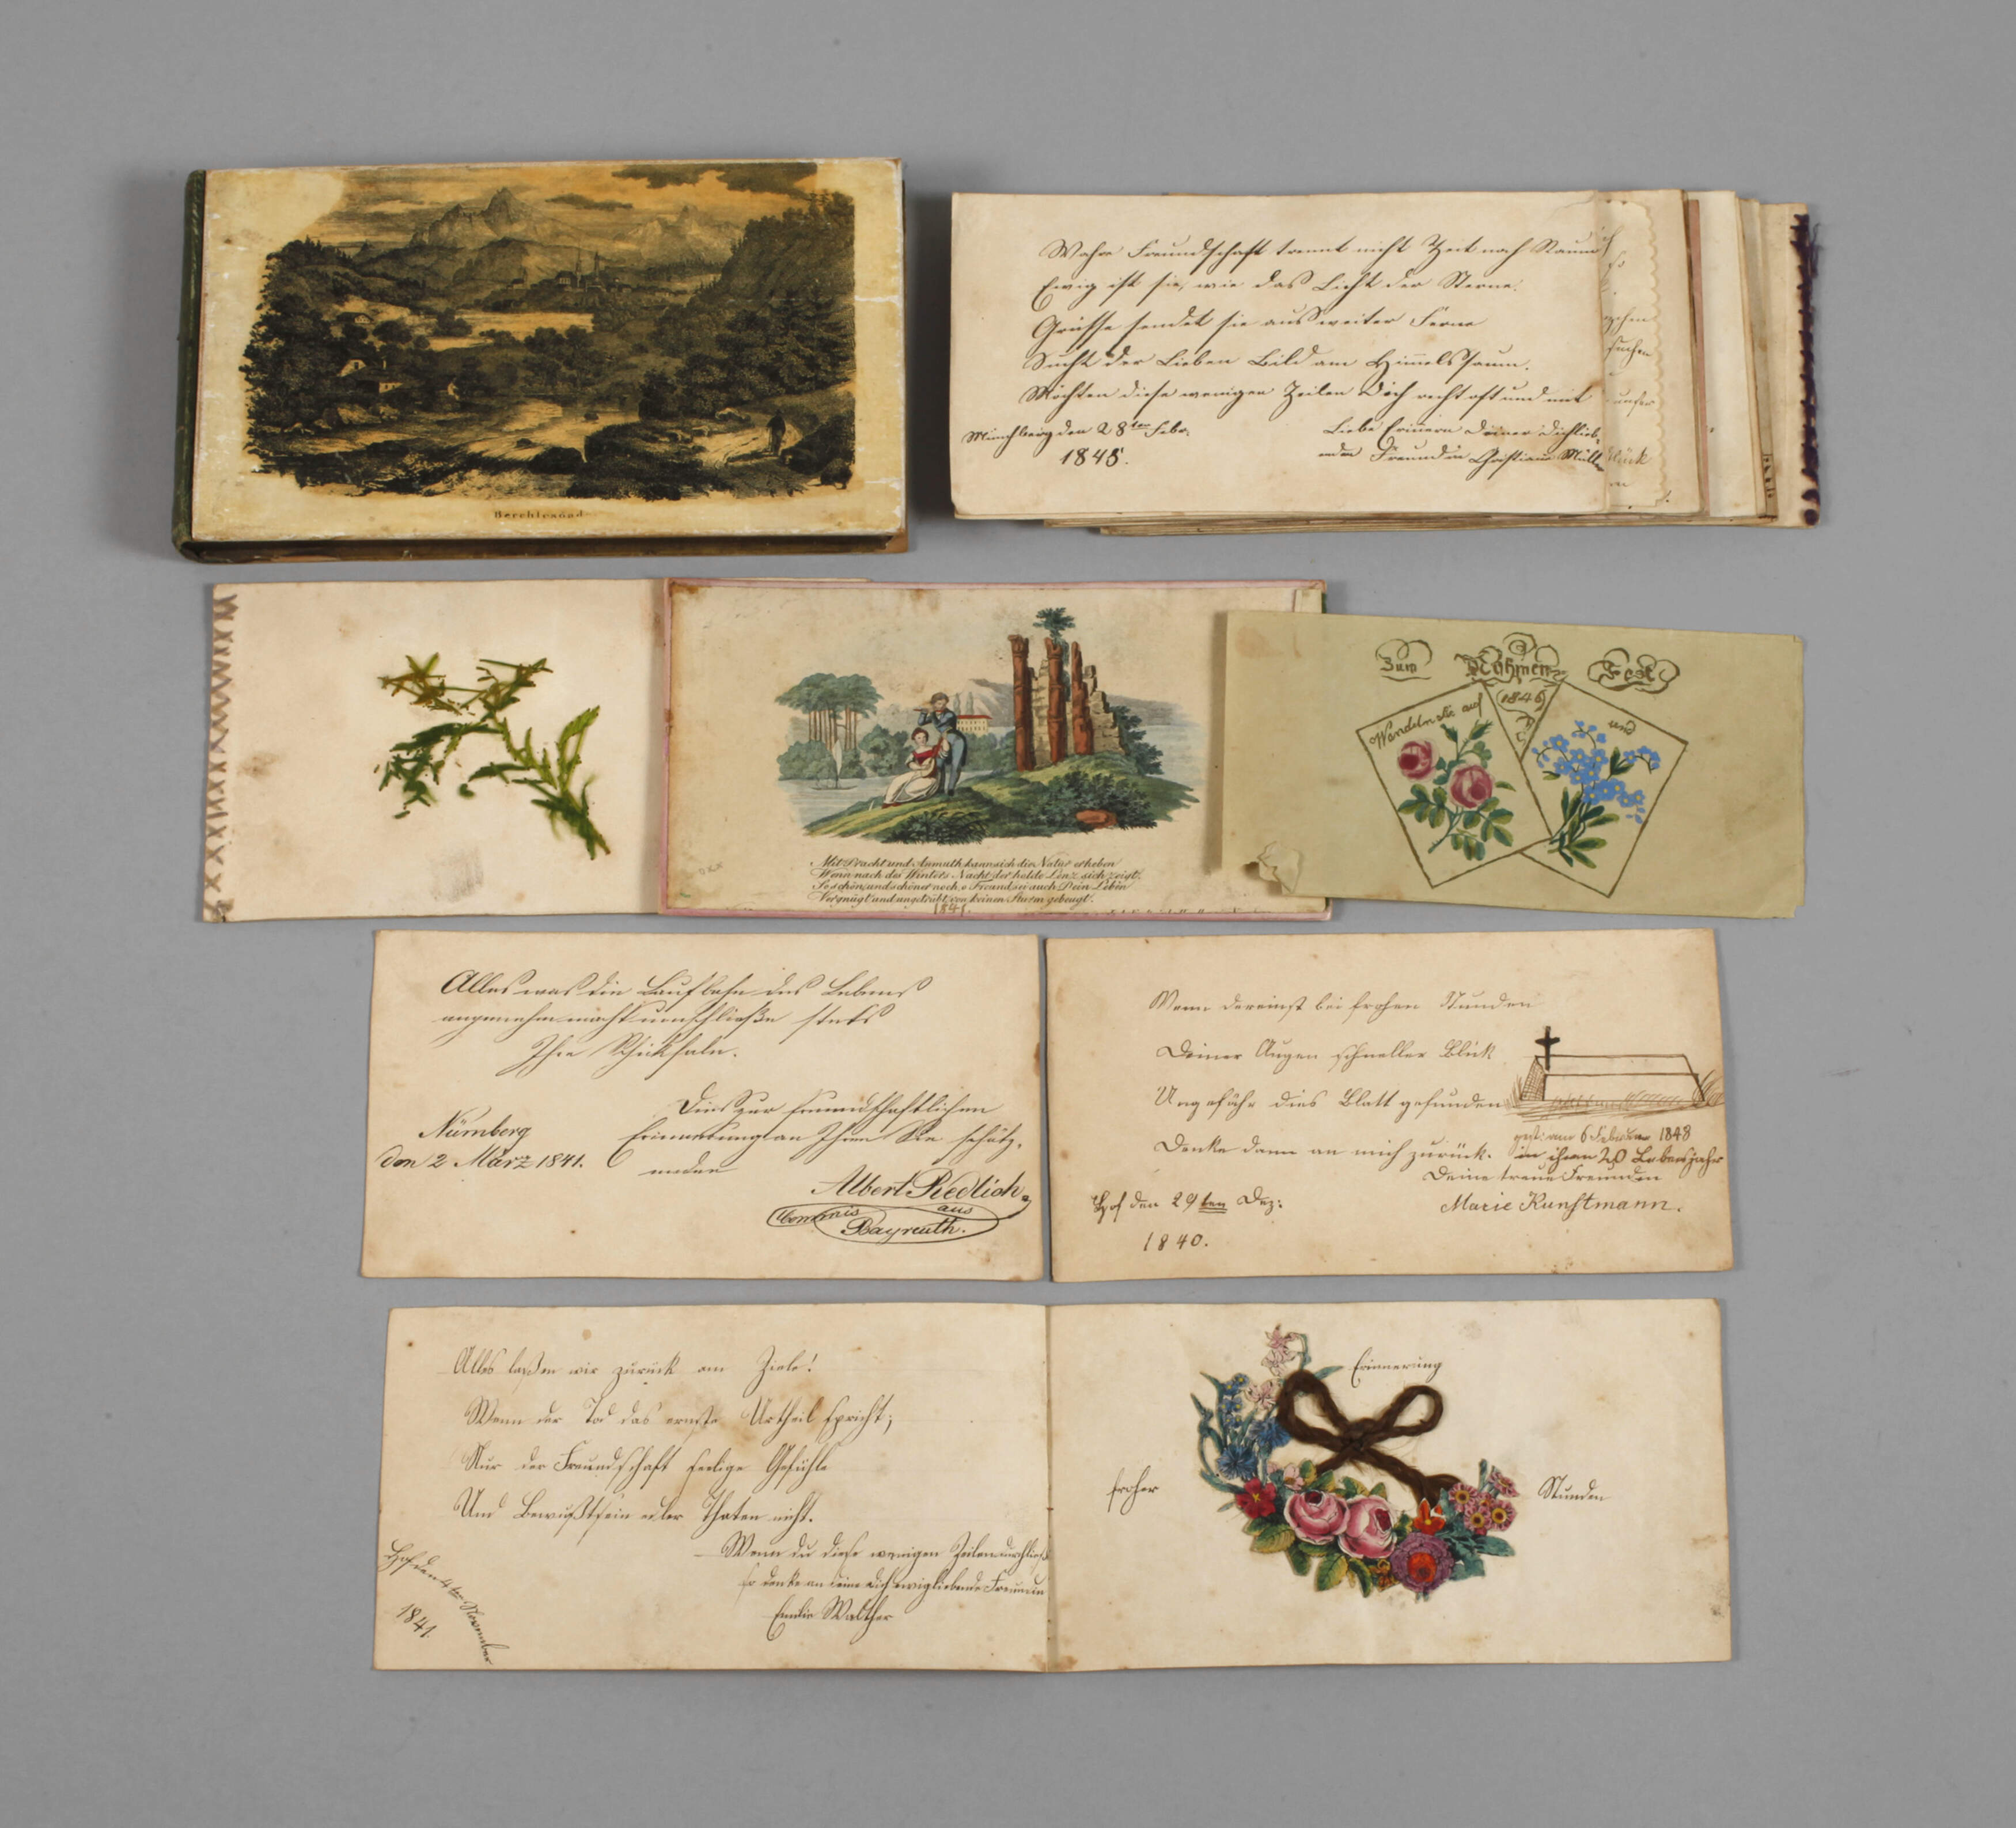 Berchtesgad
Wahre Freundschaft trennt nicht Zeit noch Raum
Ewig ist sie, wie das Licht der Sterne.
Grüsse sendet sie aus weiter Ferne
Sucht der Lieben Bild am Himmelssaum.
Möchten diese wenigen Zeilen Dich recht oft und mit
Liebe Erinnern Deiner Dichlieb-
enden Freundin Christiane Müller
Münchberg den 28ten Febr.
1845.
Zum Nahmen Fest
1846
Wandeln sie auf
und
Mit Pracht und Anmuth kann sich die Natur erheben
Wenn nach des Winters Nacht der holde Lenz sich zeigt.
So schön, und schöner noch, o Freund sei auch Dein Leben
Vergnügt und ungetrübt, von keinem Sturm gebeugt.
1841.
Alles was die Laufbahn des Lebens
angenehm macht umschließe stets
Ihre Schicksale.
Dies zur freundschaftlichen
Erinnerung an Ihren Sie schätz-
enden
Albert Riedlich
Commis aus
Bayreuth.
Nürnberg
den 2 März 1841.
Wenn dereinst bei frohen Stunden
Deiner Augen schneller Blick
Ungefähr dies Blatt gefunden
Denke dann an mich zurück.
gest: am 6 Februar 1848
in ihren 20 Lebensjahr
Deine treue Freundin
Marie Kunstmann.
Hof den 29ten Dez:
1840.
Alles laßen wir zurück am Ziele!
Wenn der Tod das ernste Urtheil spricht;
Nur der Freundschaft selige Gefühle
Und Bewußtsein edler Thaten nicht.
Wenn du diese wenigen Zeilen durchliest
so denke an deine dich ewigliebende Freundin
Emilie Walther
Hof den 4ten November
1841.
Erinnerung
froher Stunden